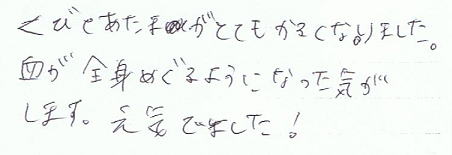 くびとあたまがとてもかるくなりました。
血が全身めぐるようになった気が
します。元気でました!